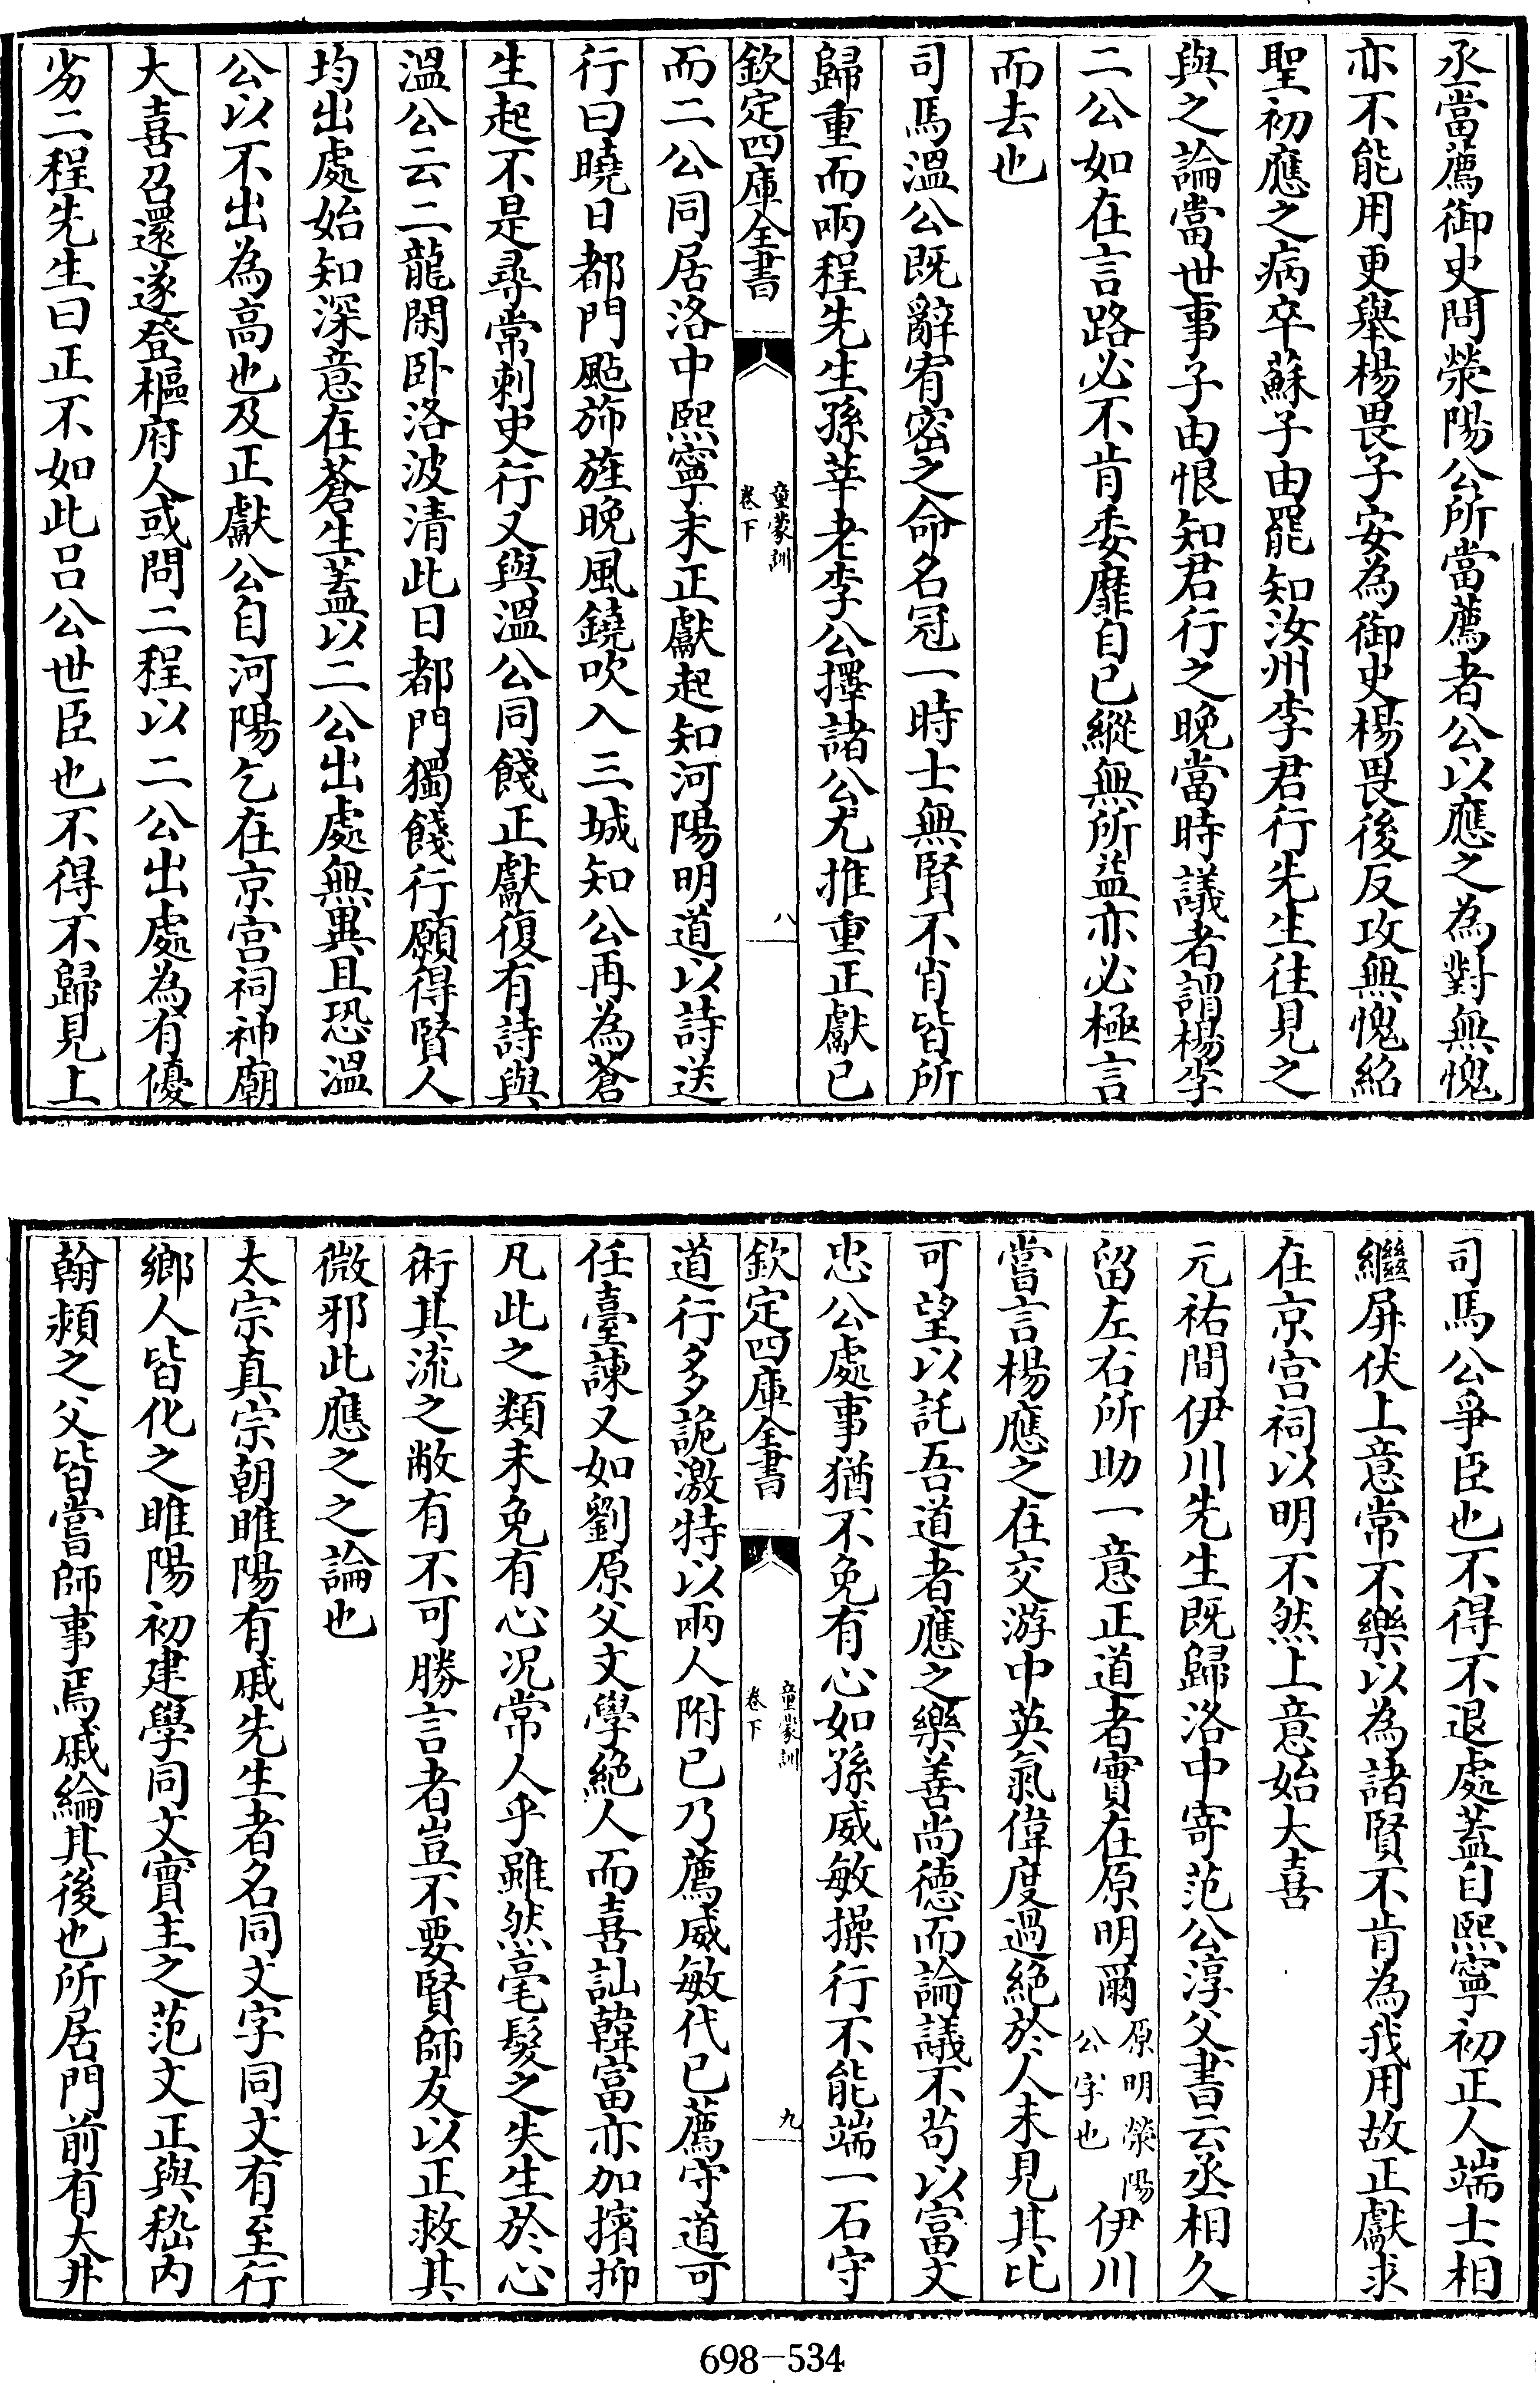 丞當薦御史問滎陽公所當薦者公以應之為對無愧
亦不能用更舉楊畏子安為御史楊畏後反攻無愧紹
聖初應之病卒蘇子由罷知汝州李君行先生往見之
與之論當世事子由恨知君行之晚當時議者謂楊李
二公如在言路必不肯委靡自已縱無所益亦必極言
而去也
司馬溫公既辭宥密之命名冠一時士無賢不肖皆所
歸重而兩程先生孫莘老李公擇諸公尤推重正獻已
欽定四庫全書
童蒙訓
卷下
八
而二公同居洛中熙寧末正獻起知河陽明道以詩送
行曰曉日都門颭斾旌晚風鐃吹入三城知公再為蒼
生起不是尋常刺史行又與溫公同餞正獻復有詩與
溫公云二龍閑卧洛波清此日都門獨餞行願得賢人
均出處始知深意在蒼生蓋以二公出處無異且恐溫
公以不出為高也及正獻公自河陽乞在京宮祠神廟
大喜召還遂登樞府人或問二程以二公出處為有優
劣二程先生曰正不如此呂公世臣也不得不歸見上
司馬公爭臣也不得不退處蓋自熙寧初正人端士相
繼屏伏上意常不樂以為諸賢不肯為我用故正獻求
在京宮祠以明不然上意始大喜
元祐間伊川先生既歸洛中寄范公淳父書云丞相久
留左右所助一意正道者實在原明爾原明滎陽公字也伊川
嘗言楊應之在交游中英氣偉度過絕於人未見其比
可望以託吾道者應之樂善尚德而論議不苟以富文
忠公處事猶不免有心如孫威敏操行不能端一石守
欽定四庫全書
童蒙訓
卷下
九
道行多詭激特以兩人附已乃薦威敏代已薦守道可
任臺諫又如劉原父文學絕人而喜訕韓富亦加擯抑
凡此之類未免有心况常人乎雖然毫髮之失生於心
術其流之敝有不可勝言者豈不要賢師友以正救其
微邪此應之之論也
太宗真宗朝睢陽有戚先生者名同文字同文有至行
鄉人皆化之睢陽初建學同文實主之范文正與嵇内
翰熲之父皆嘗師事焉戚綸其後也所居門前有大井
698-534